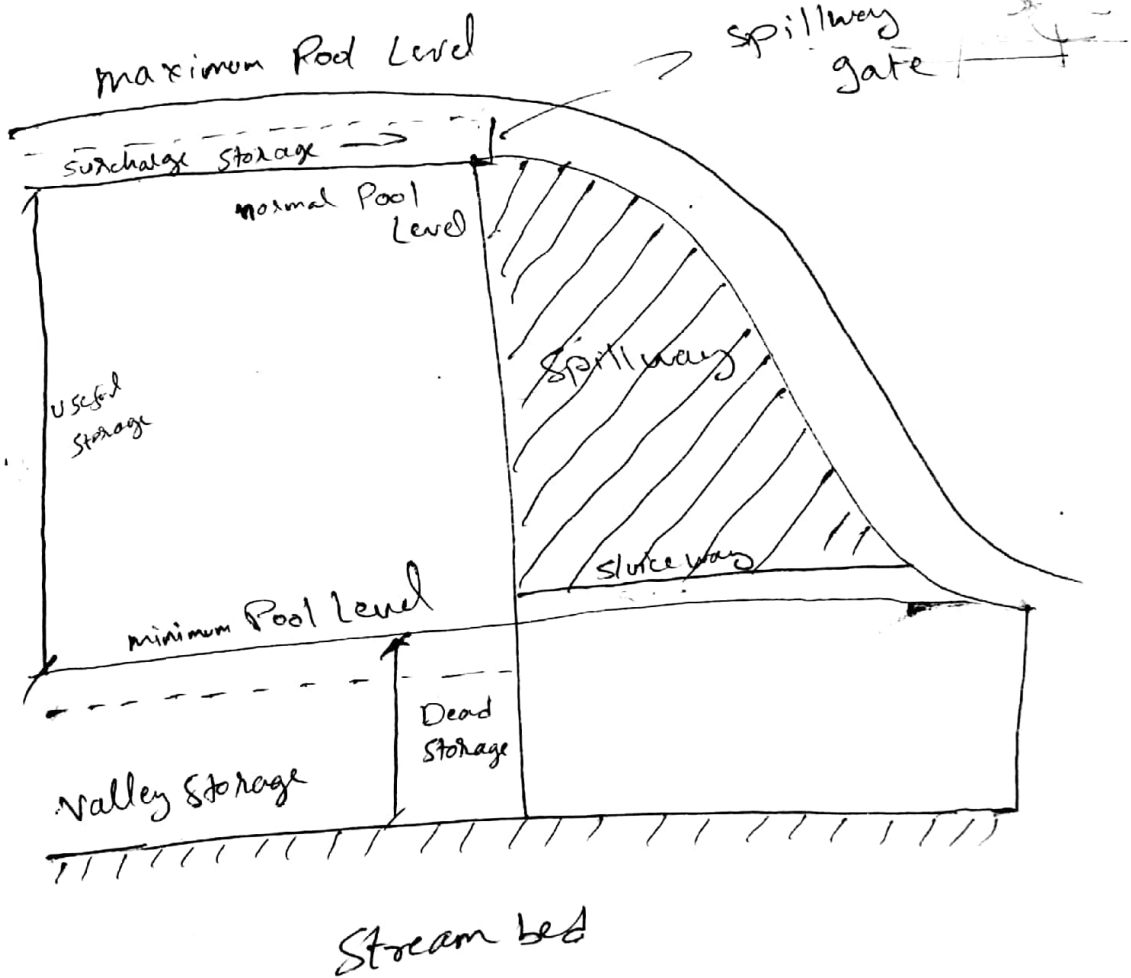 maximum Pool Level
spillway
gate
surcharge storage
normal Pool
Level
useful
storage
Spillway
sluice way
minimum Pool Level
Dead
storage
Valley storage
Stream bed